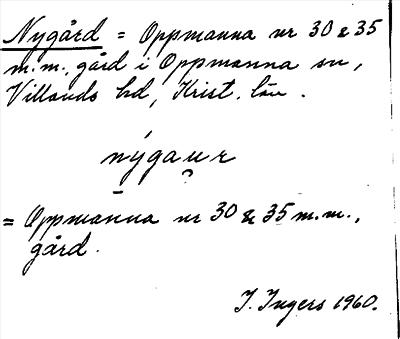 Nygård = Oppmanna nr 30 & 35
m.m., gård i Oppmanna sn,
Villands hd, Krist. län.
nýgaur
= Oppmanna nr 30 & 35 m.m.,
gård.
I. Ingers 1960.